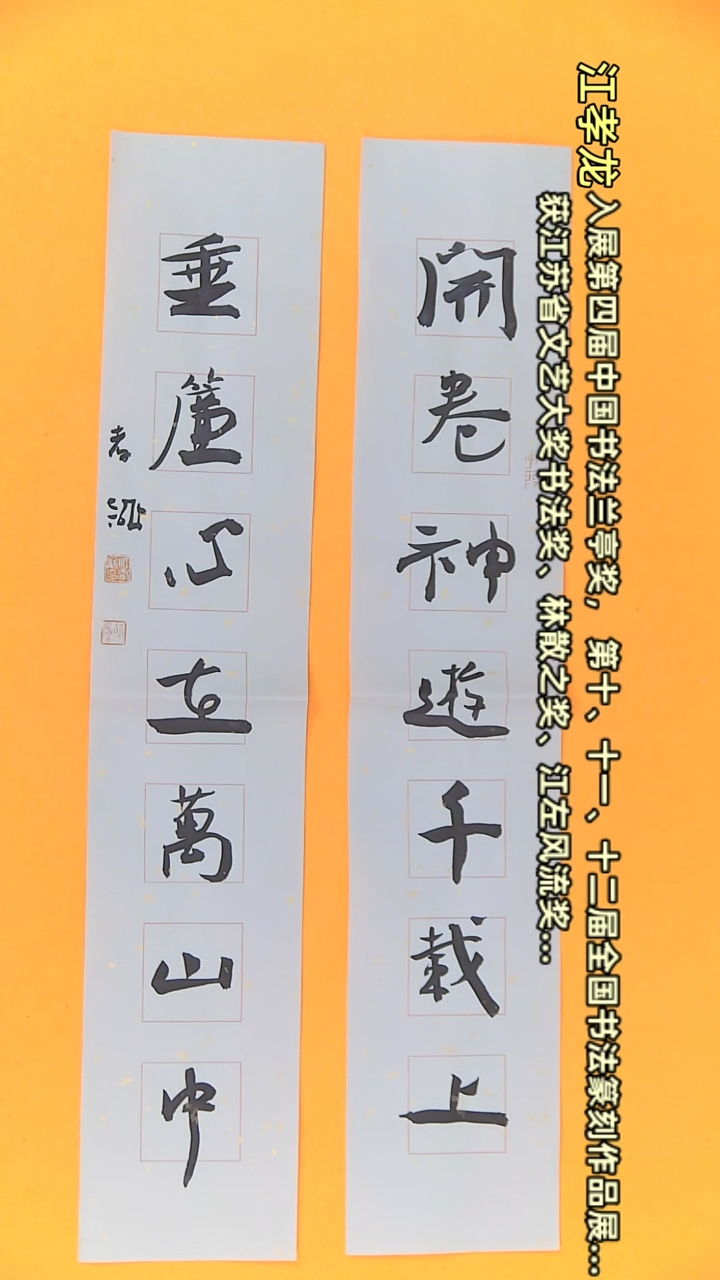 江孝龙 入展第四届中国书法兰亭奖，第十、十一、十二届全国书法篆刻作品展...
获江苏省文艺大奖书法奖、林散之奖、江左风流奖...
開卷神遊千載上
垂簾心在萬山中
孝龍